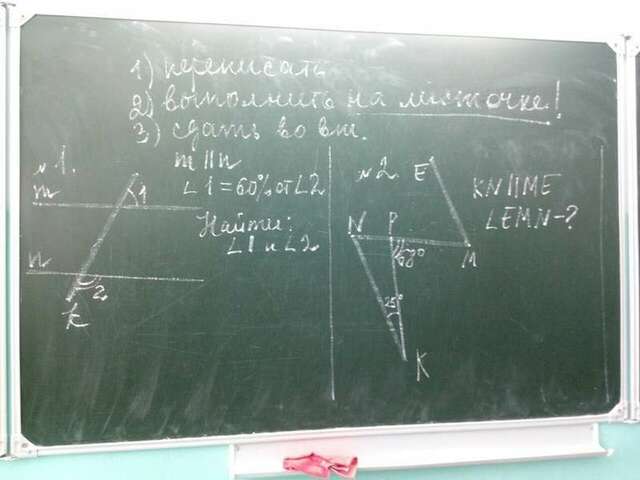 1) переписать
2) выполнить на листочке!
3) сдать во вт.
№1.
m || n
∠1 = 60% от ∠2
Найти:
∠1 и ∠2
m
1
n
2
k
№2.
KN || ME
∠EMN - ?
E
N
P
M
68°
25°
K